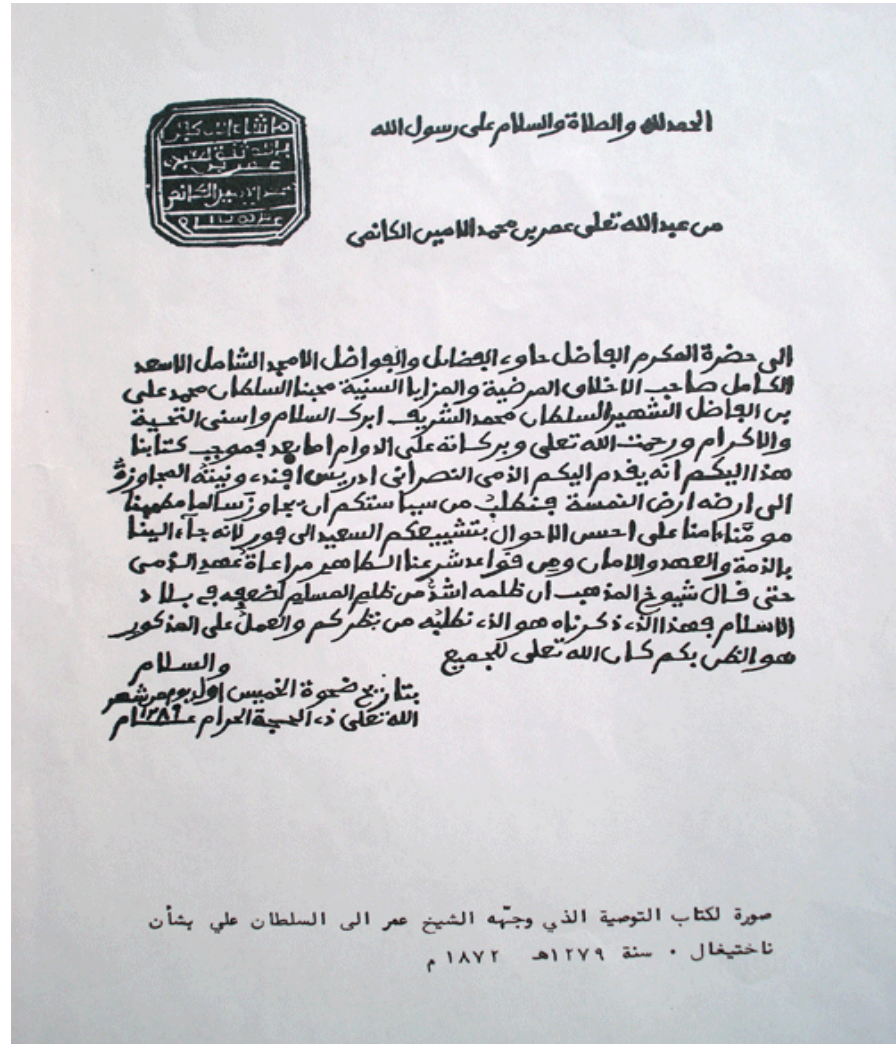 الحمد لله والصلاة والسلام على رسول الله
من عبد الله تعلى عمر بن محمد الامين الكانمي
الى حضرة المكرم الفاضل حاوي الفضائل والفواضل الامجد الشامل الاسعد
الكامل صاحب الاخلاق المرضية والمزايا السنية محبنا السلطان محمد على
بن الفاضل الشهير السلطان محمد الشريف ابرك السلام واسنى التحية
والاكرام ورحمت الله تعلى وبركاته على الدوام اما بعد فموجب كتابنا
هذا اليكم انه يقدم اليكم الذمى النصرانى ادريس افندي ونيته المجاوزة
الى ارضه ارض النمسة فنطلب من سياستكم ان يجاوز سالما مطمئنا
مومّنا ءامنا على احسن الاحوال بتشييعكم السعيد الى فور لانه جآء الينا
بالذمة والعهد والامان ومن قواعد شرعنا الطاهر مراعاة عهد الذمى
حتى قال شيوخ المذهب ان ظلمه اشدّ من ظلم المسلم لضعفه في بلاد
الاسلام فهذا الذي ذكرناه هو الذي نطلبه من نظركم والعمل على المذكور
هو الظن بكم كان الله تعلى للجميع
والسلام
بتاريخ ضحوة الخميس اول يوم من شهر
الله تعلى ذي الحجة الحرام عــام ١٢٨٩
صورة لكتاب التوصية الذي وجّهه الشيخ عمر الى السلطان علي بشأن
ناختيغال . سنة ١٢٧٩هـ ١٨٧٢ م